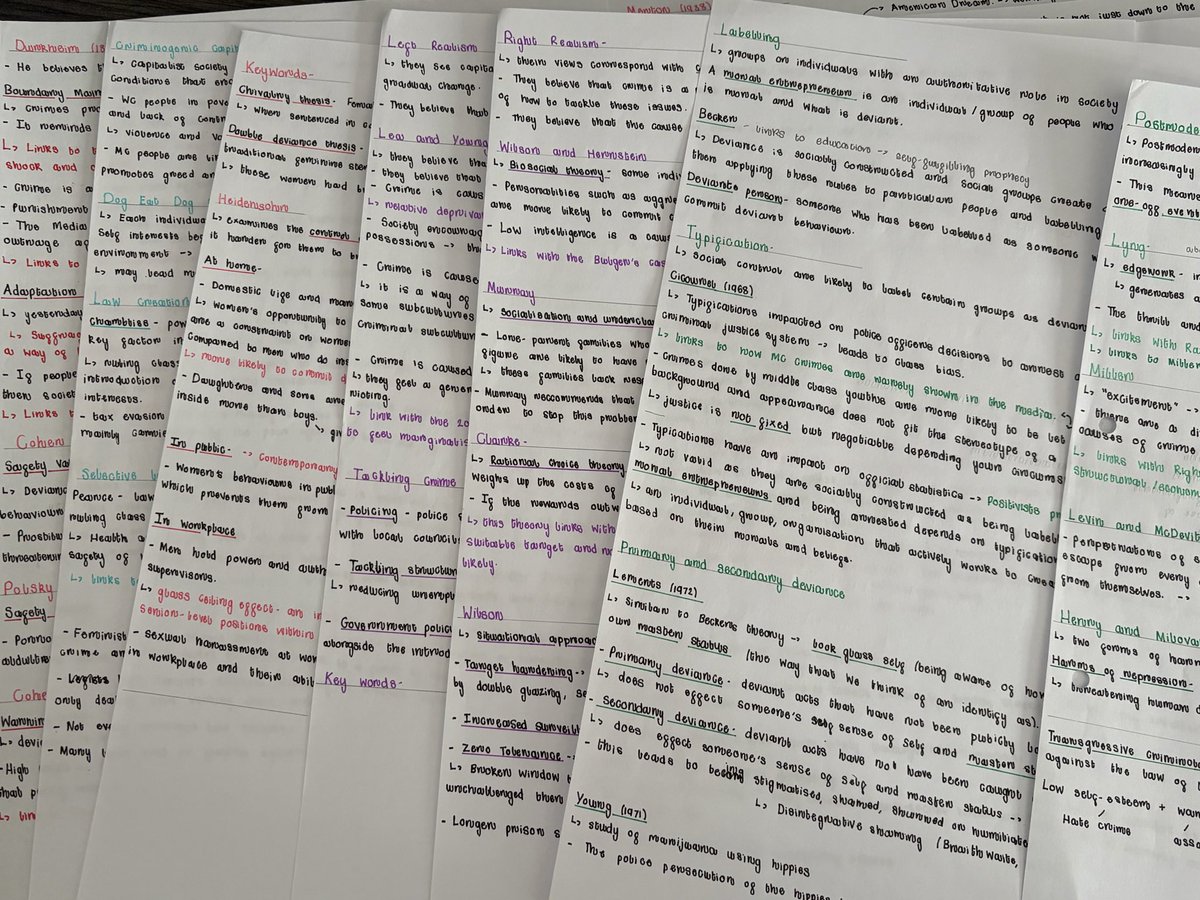 Merton (1938)
American Dream
not just down to the
Durkheim (18
- He believes t
Boundary Main
↳ Crimes pro
- It reminds
↳ Links to
shock and
- Crime is a
- Punishment
- The Media
outrage a
↳ Links to
Adaptation
↳ yesterday
↳ Suggest
a way of
- If people
them socie
↳ Links t
Cohen
Safety Va
↳ Devianc
behaviour
- Prostitu
threatenin
Polsky
Safety
- Pornog
adulter
Cohe
Warnin
↳ devi
- High
that p
↳ lin
Criminogenic Capit
↳ Capitalist society
conditions that en
- WC people in pov
and lack of contro
↳ violence and va
- MC people are li
promotes greed an
Dog Eat Dog
↳ Each individua
Self interests be
environment ->
↳ may lead m
Law creation
Chambliss - pow
Key factor in
↳ ruling class
introduction o
interests.
- tax evasion
mainly carrie
Selective
Pearce - law
ruling class
↳ Health a
safety of
↳ links t
- Feminist
crime an
- Neglects
only dea
- Not eve
- Many
Keywords-
Chivalry thesis- Fema
↳ when sentenced in c
Double deviance thesis-
traditional feminine ste
↳ these women had b
Heidensohn
↳ examines the control
it harder for them to b
At home-
- Domestic life and mar
↳ women's opportunity to
are a constraint on wome
compared to men who do ins
↳ more likely to commit d
- Daughters and some are
inside more than boys.
In public- -> contemporary
- Women's behaviours in publ
which prevents them from
In workplace
- Men hold power and auth
supervisors.
↳ glass ceiling effect- an in
senior-level positions within
- sexual harassment at wor
in workplace and their abil
Left Realism-
↳ they see capita
gradual change.
- They believe that
Lea and Young
↳ they believe tha
they believe that
- Crime is caus
↳ relative depriva
- Society encourag
possessions -> th
- Crime is cause
↳ it is a way of
some subcultures
criminal subcultur
- Crime is caused
↳ they feel a gener
rioting.
↳ link with the 20
to feel marginalis
Tackling crime
- Policing - police s
with local council
- Tackling structur
↳ reducing unempl
- Government polic
alongside the introd
Key words-
Right Realism-
↳ their views correspond with
- They believe that crime is a
of how to tackle these issues.
- They believe that the cause
Wilson and Hernstein
↳ Biosocial theory- some indi
- Personalities such as aggre
are more likely to commit
- Low intelligence is a caus
↳ Links with the Bulger's cas
Murray
↳ Socialisation and underclas
- Lone-parent families who
figure are likely to have
↳ these families lack nes
- Murray recommends that
order to stop this proble
Clarke-
↳ Rational choice theory
weighs up the costs of
- If the rewards out
↳ this theory links with
suitable target and m
likely.
Wilson
↳ situational approac
- Target hardening->
by double glazing, se
- Increased surveill
- Zero Tolerance -
↳ Broken window
unchallenged then
- Longer prison s
Labelling
↳ groups or individuals with an authoritative role in society
A moral entrepreneur is an individual/group of people who
is moral and what is deviant.
Becker - links to education -> self-fulfilling prophecy
↳ Deviance is socially constructed and social groups create
then applying these rules to particular people and labelling
Deviant person- someone who has been labelled as someone
commit deviant behaviour.
Typification-
↳ social control are likely to label certain groups as devian
Cicourel (1968)
↳ Typifications impacted on police officers decisions to arrest
criminal justice system -> leads to class bias.
↳ links to how MC crimes are rarely shown in the media.
- Crimes done by middle class youths are more likely to be let
background and appearance does not fit the stereotype of a
↳ justice is not fixed but negotiable depending your circums
- Typifications have an impact on official statistics -> Positivists pr
↳ not valid as they are socially constructed as being labell
moral entrepreneurs and being arrested depends on typification
↳ an individual, group, organisation that actively works to crea
based on their morals and beliefs.
Primary and secondary deviance
Lemerts (1972)
↳ Similar to Beckers theory -> look glass self (being aware of how
own master status (the way that we think of an identify as).
- Primary deviance- deviant acts that have not been publicly la
↳ does not effect someone's self sense of self and master st
- secondary deviance- deviant acts have not have been caught
↳ does effect someone's sense of self and master status ->
- this leads to being stigmatised, shamed, shunned or humiliate
↳ Disintegrative shaming (Braithwaite,
Young (1971)
↳ study of marijuana using hippies
- The police persecution of the hippies
Postmode
↳ Postmoder
increasingly
- This mean
one-off even
Lyng-
↳ edgework - in
↳ generates a
- The thrill and
↳ links with Ra
↳ links to Miller
Miller
↳ "excitement" ->
- there are a di
causes of crime
↳ links with Righ
structural/econom
Levin and McDevit
- perpetrators of
escape from every
from themselves. ->
Henry and Milova
↳ two forms of harm
Harms of repression-
↳ threatening human d
Transgressive criminolo
against the law or
Low self-esteem + wan
Hate crime
assa